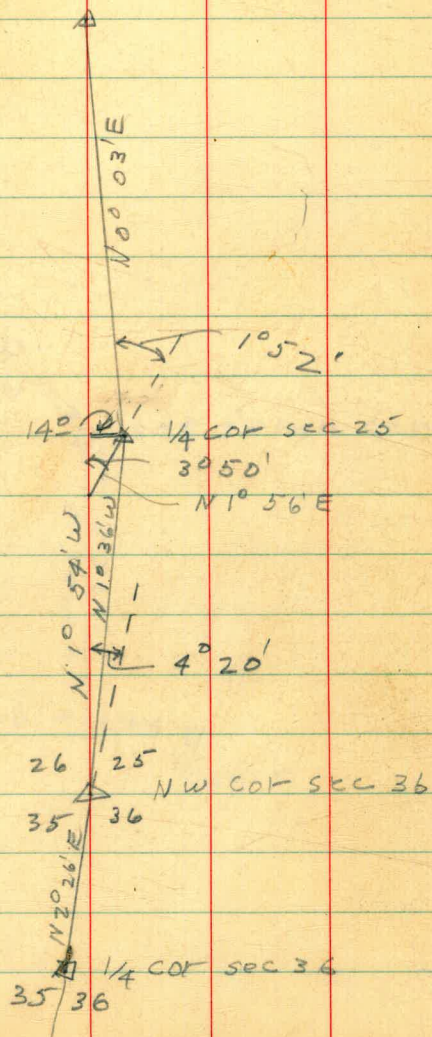 N 0° 03' E
1° 52'
14° 1/4 cor sec 25
3° 50'
N 1° 56' E
N 1° 54' W
N 1° 36' W
4° 20'
26 25
NW cor sec 36
35 36
N 2° 26' E
1/4 cor sec 36
35 36